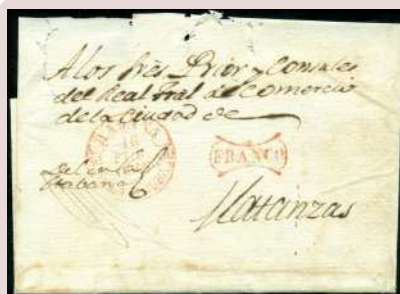 A los Sres Prior y Consules
del Real Tral de Comercio
de la Ciudad de
HABANA
FRANCO
Habana
Matanzas